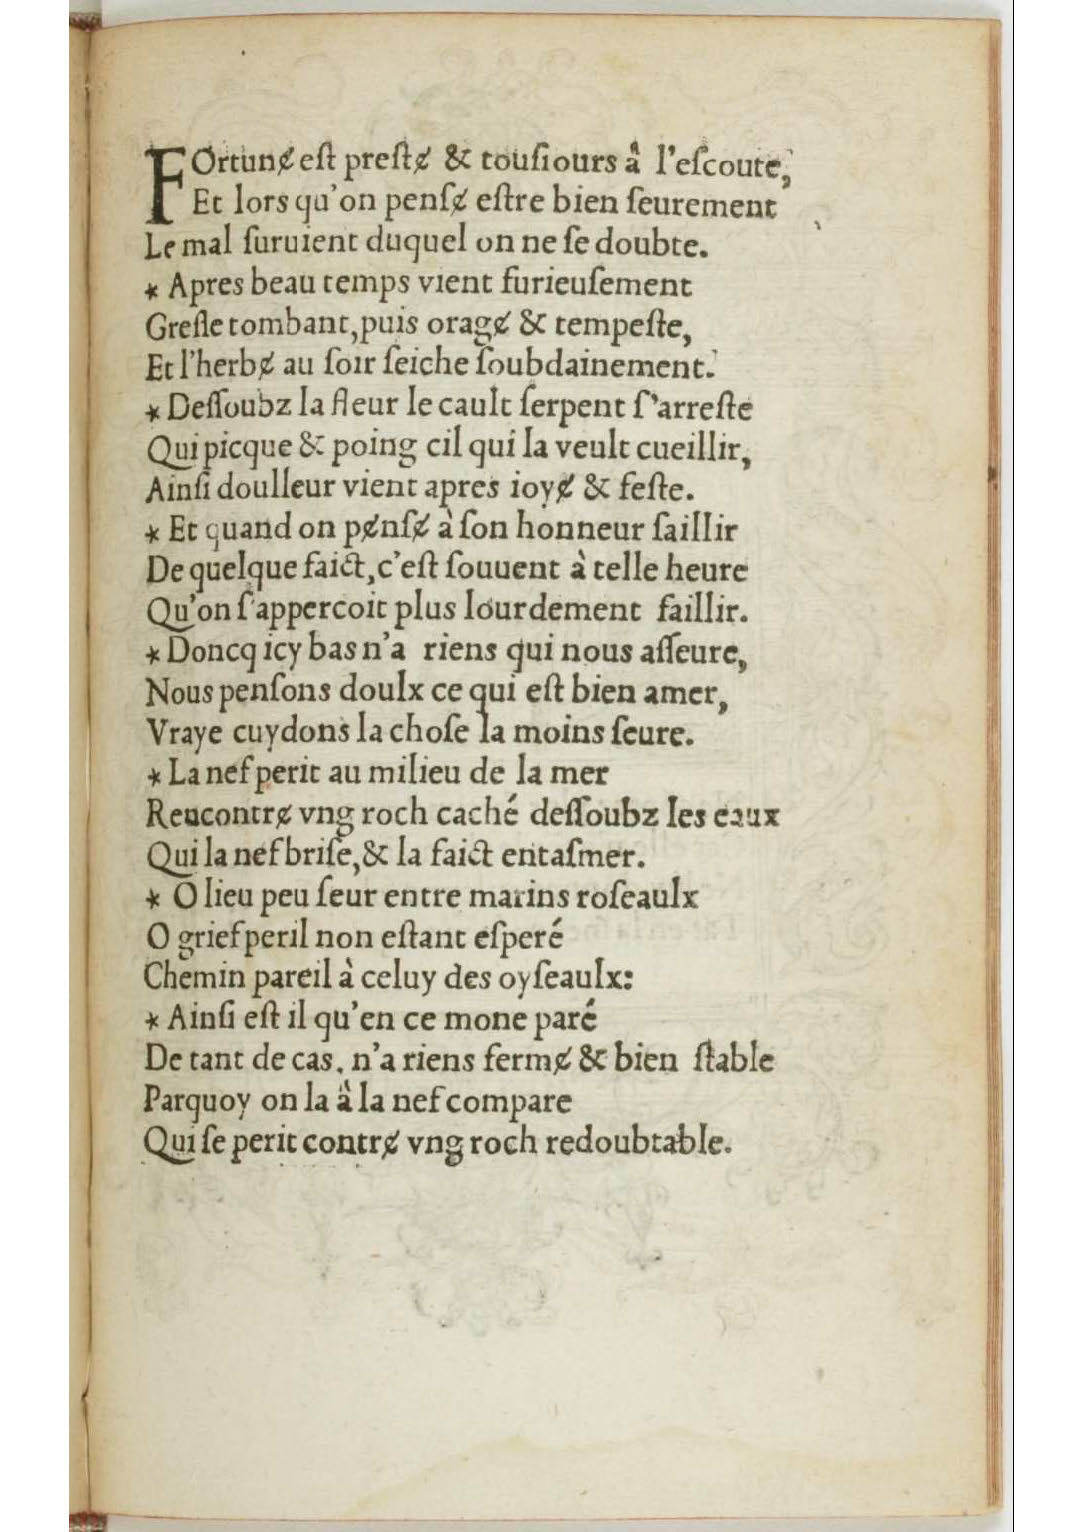 FOrtunɇ est prestɇ & tousiours â l'escoute,
Et lors qu'on pensɇ estre bien seurement
Le mal suruient duquel on ne se doubte.
* Apres beau temps vient furieusement
Gresle tombant, puis oragɇ & tempeste,
Et l'herbɇ au soir seiche soubdainement.
* Dessoubz la fleur le cault serpent s'arreste
Qui picque & poing cil qui la veult cueillir,
Ainsi doulleur vient apres ioyɇ & feste.
* Et quand on pɇnsɇ à son honneur saillir
De quelque faict, c'est souuent à telle heure
Qu'on s'appercoit plus lourdement faillir.
* Doncq icy bas n'a riens qui nous asseure,
Nous pensons doulx ce qui est bien amer,
Vraye cuydons la chose la moins seure.
* La nef perit au milieu de la mer
Reucontrɇ vng roch caché dessoubz les eaux
Qui la nef brise, & la faict entasmer.
* O lieu peu seur entre marins roseaulx
O grief peril non estant esperé
Chemin pareil à celuy des oyseaulx:
* Ainsi est il qu'en ce mone paré
De tant de cas, n'a riens fermɇ & bien stable
Parquoy on la â la nef compare
Qui se perit contrɇ vng roch redoubtable.